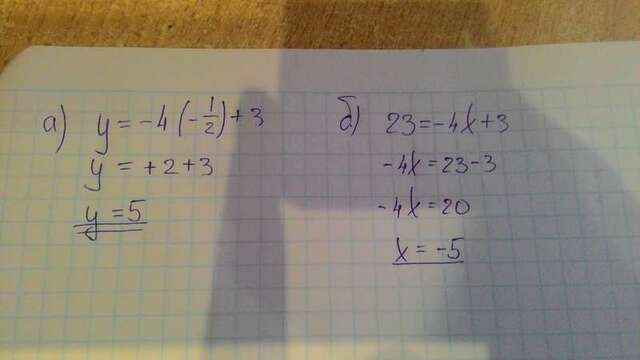 а) y = -4(-1/2)+3
y = +2+3
y = 5
б) 23=-4x+3
-4x=23-3
-4x=20
x = -5